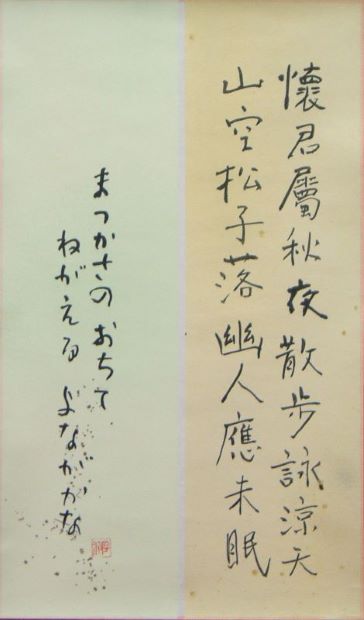 懷君屬秋夜散歩詠涼天
山空松子落幽人應未眠
まつかさのおちて
ねがえるよながかな